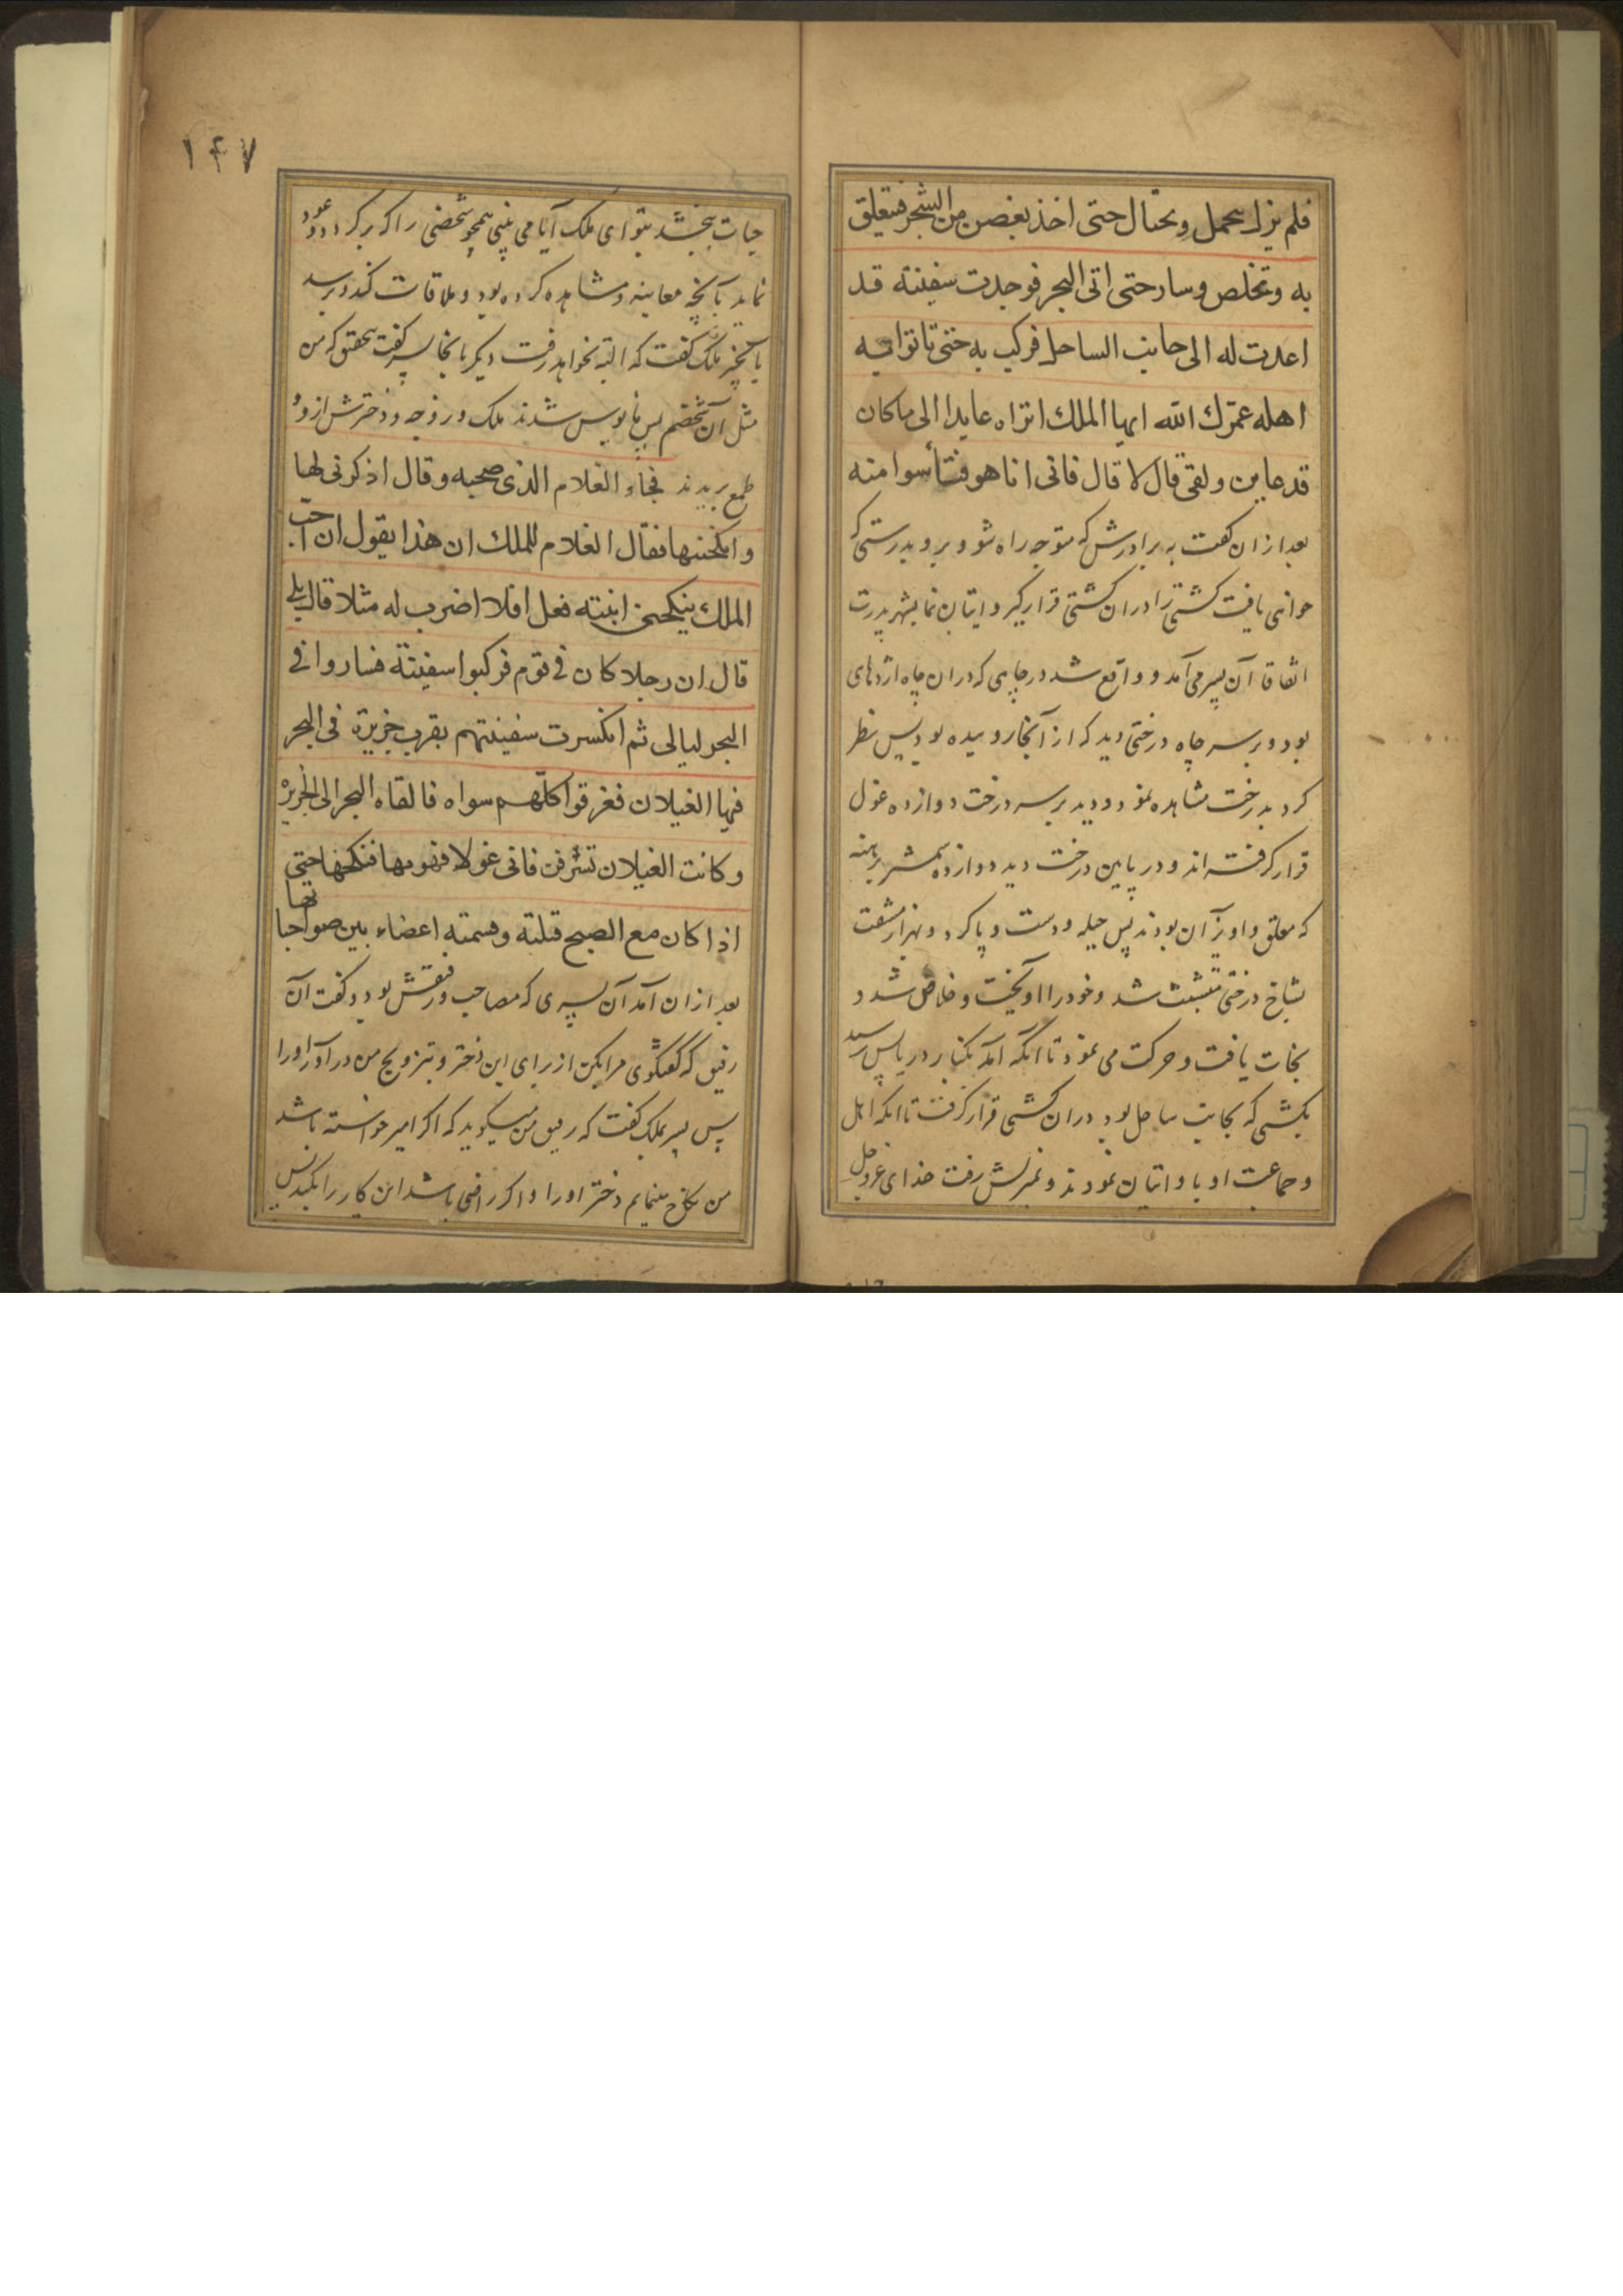 فلم یزل یتحمل ویحتال حتی اخذ بغصن من الشجر فتعلق
به وتخلص وسار حتی اتی البحر فوجدت سفینة قد
اعدت له الی جانب الساحل فرکب به حتی تاتوا به
اهله عمّرك الله ایها الملك اتراه عایدا الی ما کان
قد عاین ولقی قال لا قال فانی انا هو فتأسوا منه
بعد از ان گفت به برادرش که متوجه راه شو و برو بدرستی که
خواهی یافت کشتی را در ان کشتی قرار گیر و اتیان نما بشهر پدرت
اتفاقا آن پسر می آمد و واقع شد در چاهی که در ان چاه اژدهای
بود و بر سر چاه درختی دید که از آنجا روییده بود پس نظر
کرد بدرخت مشاهده نمود و دید بر سر درخت دوازده غول
قرار گرفته اند و در پایین درخت دید دوازده شمشیر برهنه
که معلق و اویزان بودند پس حیله و دست و پا کرد و بهزار مشقت
بشاخ درختی متشبث شد و خود را اویخت و خلاص شد و
نجات یافت و حرکت می نمود تا انکه آمد بکنار دریا پس رسید
بکشتی که بجانب ساحل بود در ان کشتی قرار گرفت تا انکه اهل
و جماعت او با او اتیان نمودند و بمنزلش رفت خدای عزوجل
۱۴۷
حیات بخشد بتو ای ملک آیا می بینی همچو شخصی را که برگردد و عود
نماید بآنچه معاینه و مشاهده کرده بود و ملاقات کند و برسد
بآنچیز ملک گفت که البته نخواهد رفت دیگر بانجا پسر گفت بتحقق که من
مثل آن شخصم پس مایوس شدند ملک و زوجه و دخترش از و و
طمع بریدند فجاء الغلام الذی صحبه وقال اذکرنی لها
وانکحنیها فقال الغلام للملك ان هذا یقول ان احب
الملك ینکحنی ابنته فعل افلا اضرب له مثلا قال بلی
قال ان رجلا کان فی قوم فرکبوا سفینة فساروا فی
البحر لیالی ثم انکسرت سفینتهم بقرب جزیرة فی البحر
فیها الغیلان فغرقوا کلّهم سواه فالقاه البحر الی الجزیرة
وکانت الغیلان تشرفن فاتی غولا فهویها فنکحها حتی
اذا کان مع الصبح قتلته وقسمته اعضاء بین صواحباتها
بعد از ان آمد آن پسری که مصاحب و رفیقش بود و گفت آن
رفیق که گفتگوی مرا بکن از برای این دختر و بتزویج من در آور او را
پس پسر بملک گفت که رفیق من میگوید که اگر امیر خواسته باشد
من نکاح مینمایم دختر او را و اگر راضی باشد این کار را بکند پس